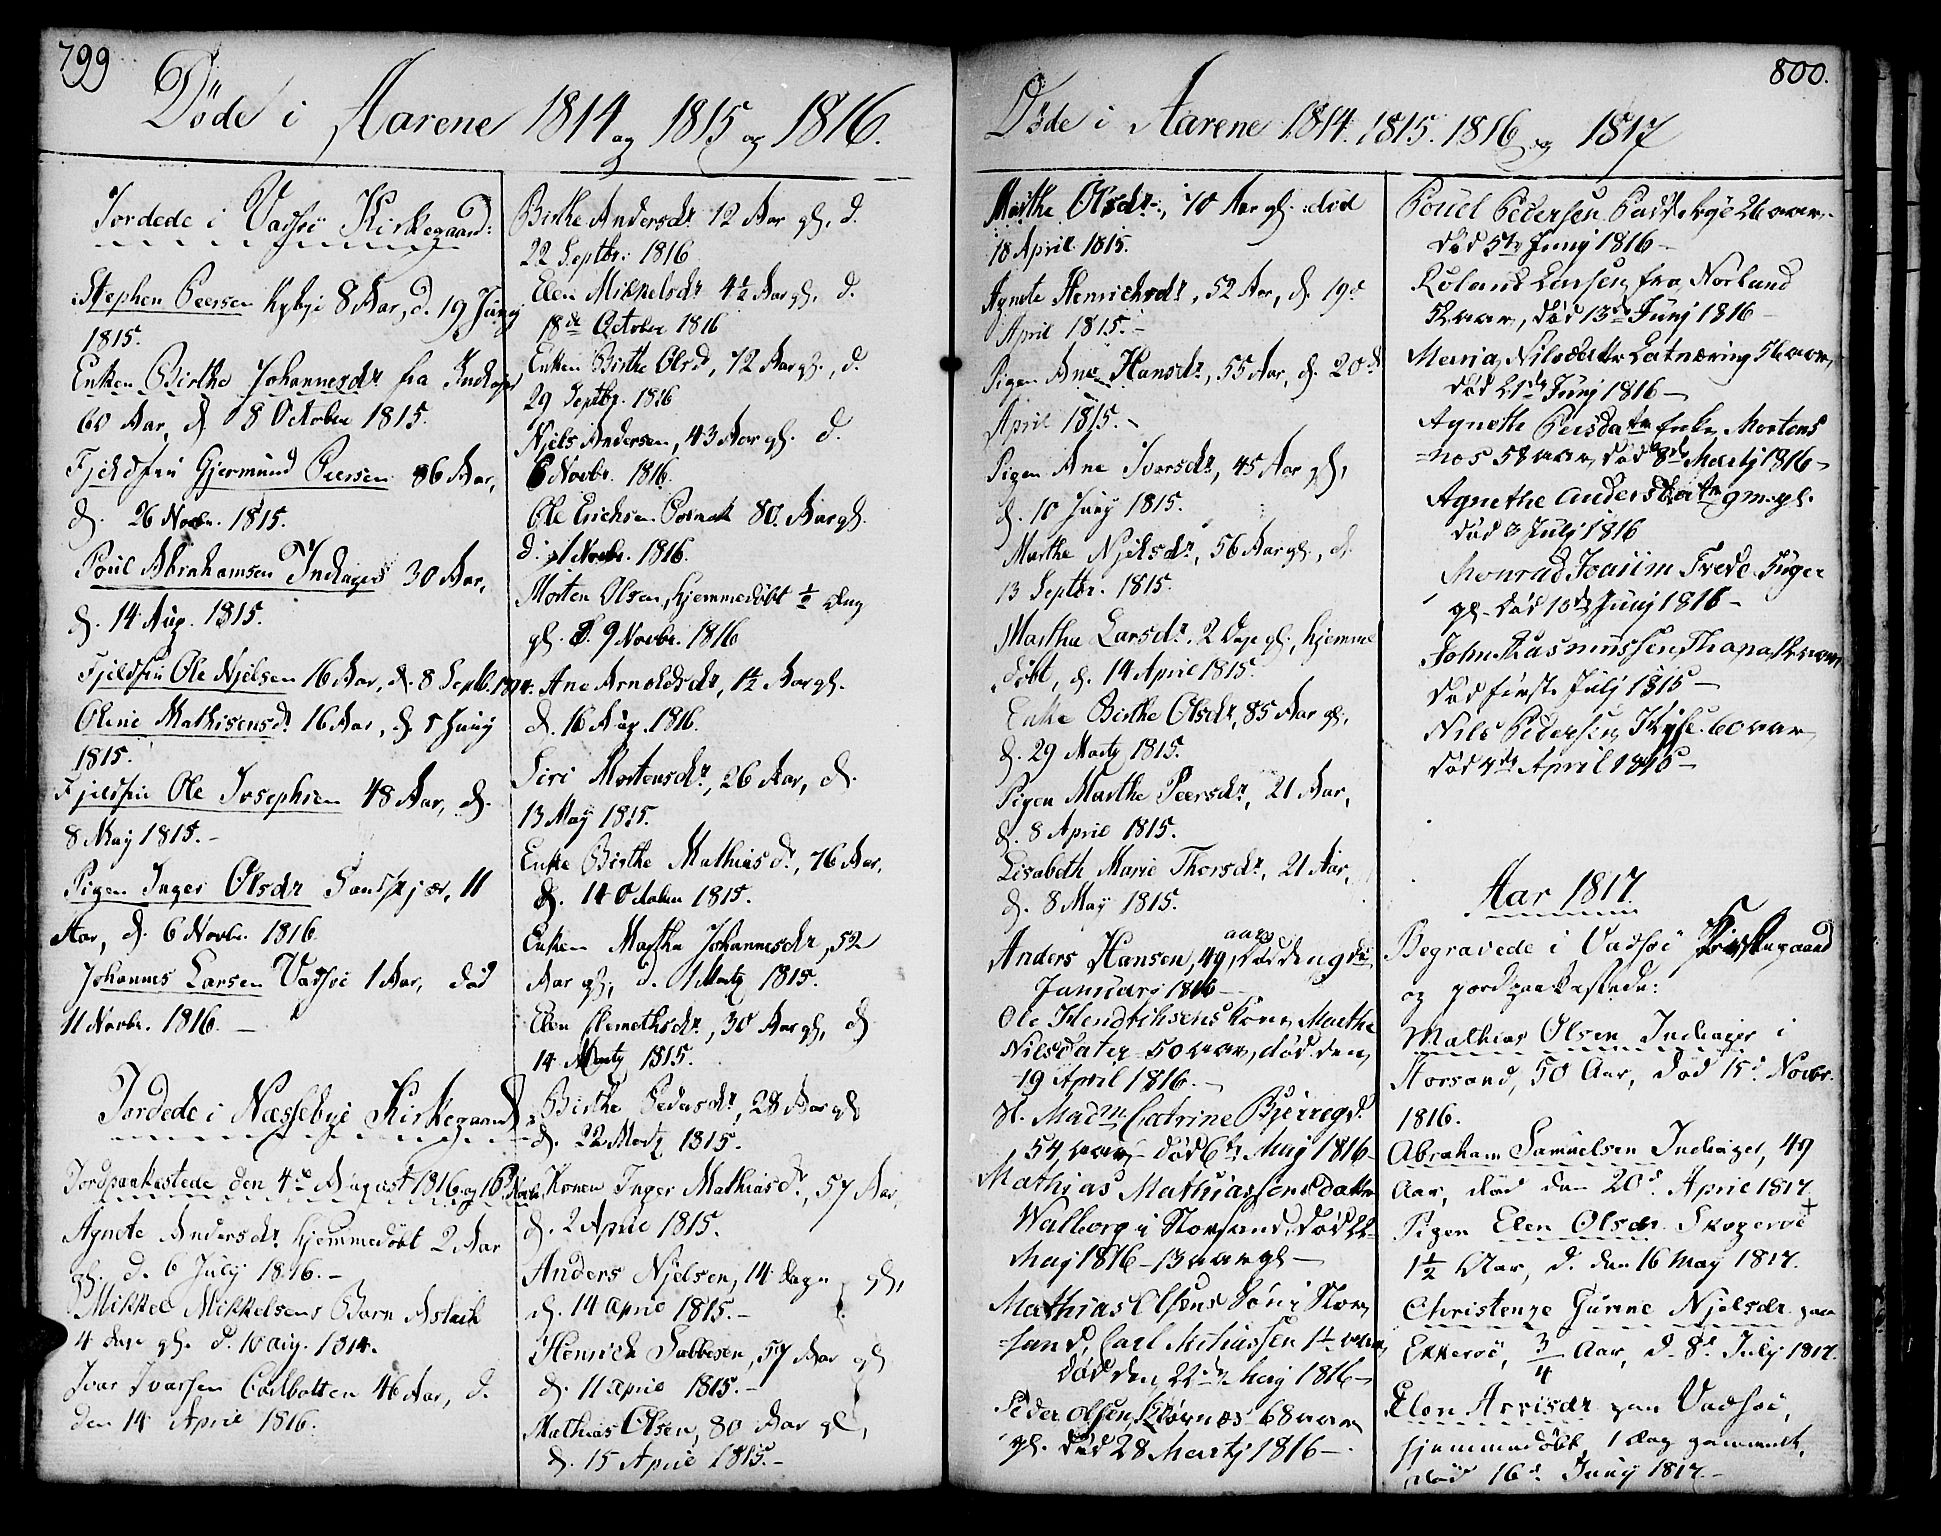 799
Døde i Aarene 1814 og 1815 og 1816.
Jordede i Vadsøi Kirkegaard:
Stephen Peersen Kybye 8 Aar, d. 19 Junj
1815.
Enken Birthe Johannesdr fra Indiager
60 Aar, d. 8 October 1815.
Fjeldfin Gjermund Peersen 86 Aar,
d. 26 Novbr. 1815.
Poul Abrahamsen Indiager 30 Aar,
d. 14 Aug. 1815.
Fjeldfin Ole Njelsen 16 Aar, d. 8 Septb. 1814.
Olene Mathisensdr 16 Aar, d. 5 Junij
1815.
Fjeldfin Ole Josephsen 48 Aar, d.
8 May 1815.
Pigen Inger Olsdr Sandskjær, 11
Aar, d. 6 Novbr. 1816.
Johannes Larsen Vadsøi 1 Aar, død
11 Novbr. 1816.
Jordede i Næssebye Kirkegaard
Jordpaakastede den 4de August 1816 og 16 Novbr.
Agnete Andersdr hjemmedøbt 2 Aar
gl. d. 6 July 1816.
Mikkel Mikkelsens Barn Aslack
4 dage gl. d. 10 Aug. 1814.
Ivar Ivarsen 46 Aar, d.
den 14 April 1816.
Birthe Andersdr 12 Aar gl. d.
22 Septbr. 1816
Elen Mikkelsdr 4½ Aar gl. d.
18de October 1816
Enken Birthe Olsd, 72 Aar gl., d.
29 Septbr. 1816
Njels Andersen, 43 Aar gl. d.
6 Novbr. 1816.
Ole Erichsen 80 Aar gl.
d. 1 Novbr. 1816.
Morten Olsen hjemmedøbt ½ Dag
gl. d. 9 Novbr. 1816
Ane Arnoldsdr, 1½ Aar gl.
d. 16 Aug. 1816.
Siri Mortensdr, 26 Aar, d.
13 May 1815.
Enke Birthe Mathiasdr, 76 Aar,
d. 14 October 1815.
Enken Marthe Johannesdr, 52
Aar gl, d. 1 Martz 1815.
Elen Clemethsdr, 30 Aar gl, d.
14 Martz 1815.
Birthe Pedersdr, 28 Aar gl
d. 22 Martz 1815.
Konen Inger Mathiasdr, 57 Aar,
d. 2 April 1815.
Anders Njelsen, 14 dage gl,
d. 14 april 1815.
Henrich Sabbesen, 57 Aar gl
d. 11 april 1815.
Mathias Olsen, 80 Aar gl,
d. 15 April 1815.
800.
Døde i Aarene 1814. 1815. 1816 og 1817
Marthe Olsdr, 10 Aar gl. død
18 April 1815.
Agnete Henrichsdr, 52 Aar, d. 19de
April 1815.
Pigen Ane Hansdr, 55 Aar, d. 20de
April 1815.
Pigen Ane Ivarsdr, 45 Aar gl,
d. 10 Junij 1815.
Marthe Njelsdr, 56 Aar gl, d.
13 Septbr. 1815.
Marthe Larsdr, 2 Dage gl, hjemme
døbt, d. 14 April 1815.
Enke Birthe Olsdr, 85 Aar gl,
d. 29 Martz 1815.
Pigen Marthe Peersdr, 21 Aar,
d. 8 April 1815.
Lisabeth Marie Thorsdr, 21 Aar,
d. 8 May 1815.
Anders Hansen, 49 aar, død den 9de
Januari 1816
Ole Hendrihsens Kone Marthe
Nilsdater 50 aar, død den
19 April 1816.
Sl. Madm Catrine Bjerregd.
54 aar død 6te Maj 1816
Mathias Mathiassens datter
Walborg i Storsand, død 22
Maj 1816 13 aar gl
Mathias Olsens Søn i Stor
sand, Carl Mthiassen 1½ aar
død den 22de Maj 1816
Peder Olsen Klovnes 68 aar
gl. død 28 Martij 1816
Pouel Pedersen 26 aar
død 5te Junj 1816
Roland Larsen fra Norland
52 aar, død 13de Junj 1816
Maria Nilsdatter Latnæring 56 aar
død 21de Junj 1816
Agnethe Peersdatter fra Mortens
nes 58 aar død 8de Martj 1816
Agnethe Andersdatter 9 m. gl.
død 3 Julj 1816
Monrad Joakim Frede 5 uger
gl. død 10de Junj 1816
John Rasmussen Thana 12 aar
død første Julj 1815
Nils Pedersen 60 aar
død 4de April 1816
Aar 1817.
Begravede i Vadsøi Kirkegaard
og jordpaakastede:
Mathias Olsen Indiager i
Storsand, 50 Aar, død 15d Novbr.
1816.
Abraham Samuelsen Indiager, 49
Aar, død den 20d April 1817.
Pigen Elen Olsdr Skogerøe
1½ Aar, d. den 16 May 1817.
Christenze Gurine Njelsdr paa
Ekkerøe, 3/4 Aar, d. 8d July 1817.
Elen Arrisdr paa Vadsøi,
hjemmedøbt, 1 dag gammel,
død 16d Junij 1817.